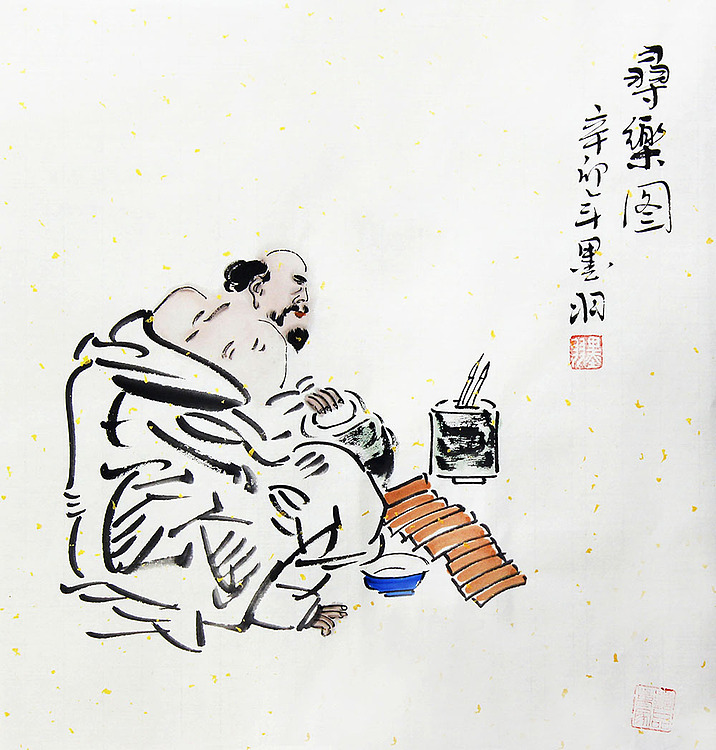 尋樂图
辛卯年墨羽